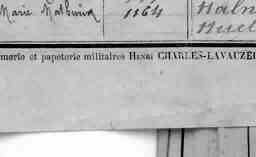 Marie Mathurin 1164 Naln
Nuel
merie et papeterie militaires HENRI CHARLES-LAVAUZEL